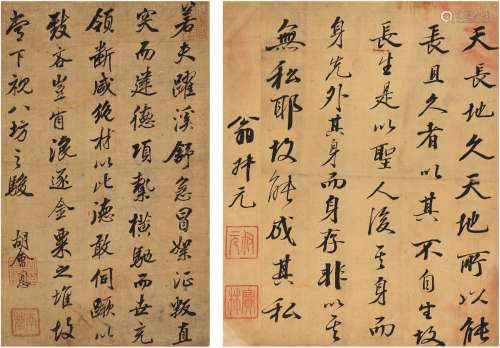 天長地久天地所以能
長且久者以其不自生故
長生是以聖人後其身而
身先外其身而身存非以其
無私耶故能成其私
翁叔元
叔元
若夫躍溪舒急冒絮征叛直
突而建德項縶橫馳而世充
領斷咸絶材以比德敢伺蹶以
致吝豈肯浪逐金粟之堆故
當下視八坊之駿
胡會恩